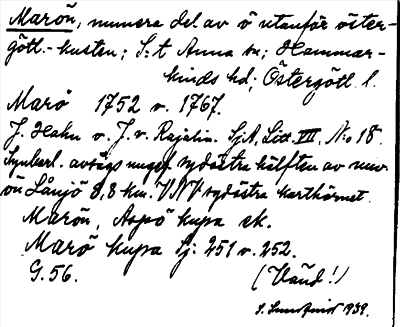 Marön, numera del av ö utanför öster-
götl.-kusten; S:t Anna sn; Hammar-
kinds hd; Östergötl. l.
Marö 1752 o. 1767.
J. Hahn o. J. v. Rajalin. SjA, Litt. VII, No 18.
Synbarl. avsågs sydöstra hälften av nuv.
ön Långö 8,8 km. VNV sydöstra karthörnet.
Marön, Aspö kupa ek.
Marö kupa Sj: 251 o. 252.
G. 56.
(Vänd!)
1939.